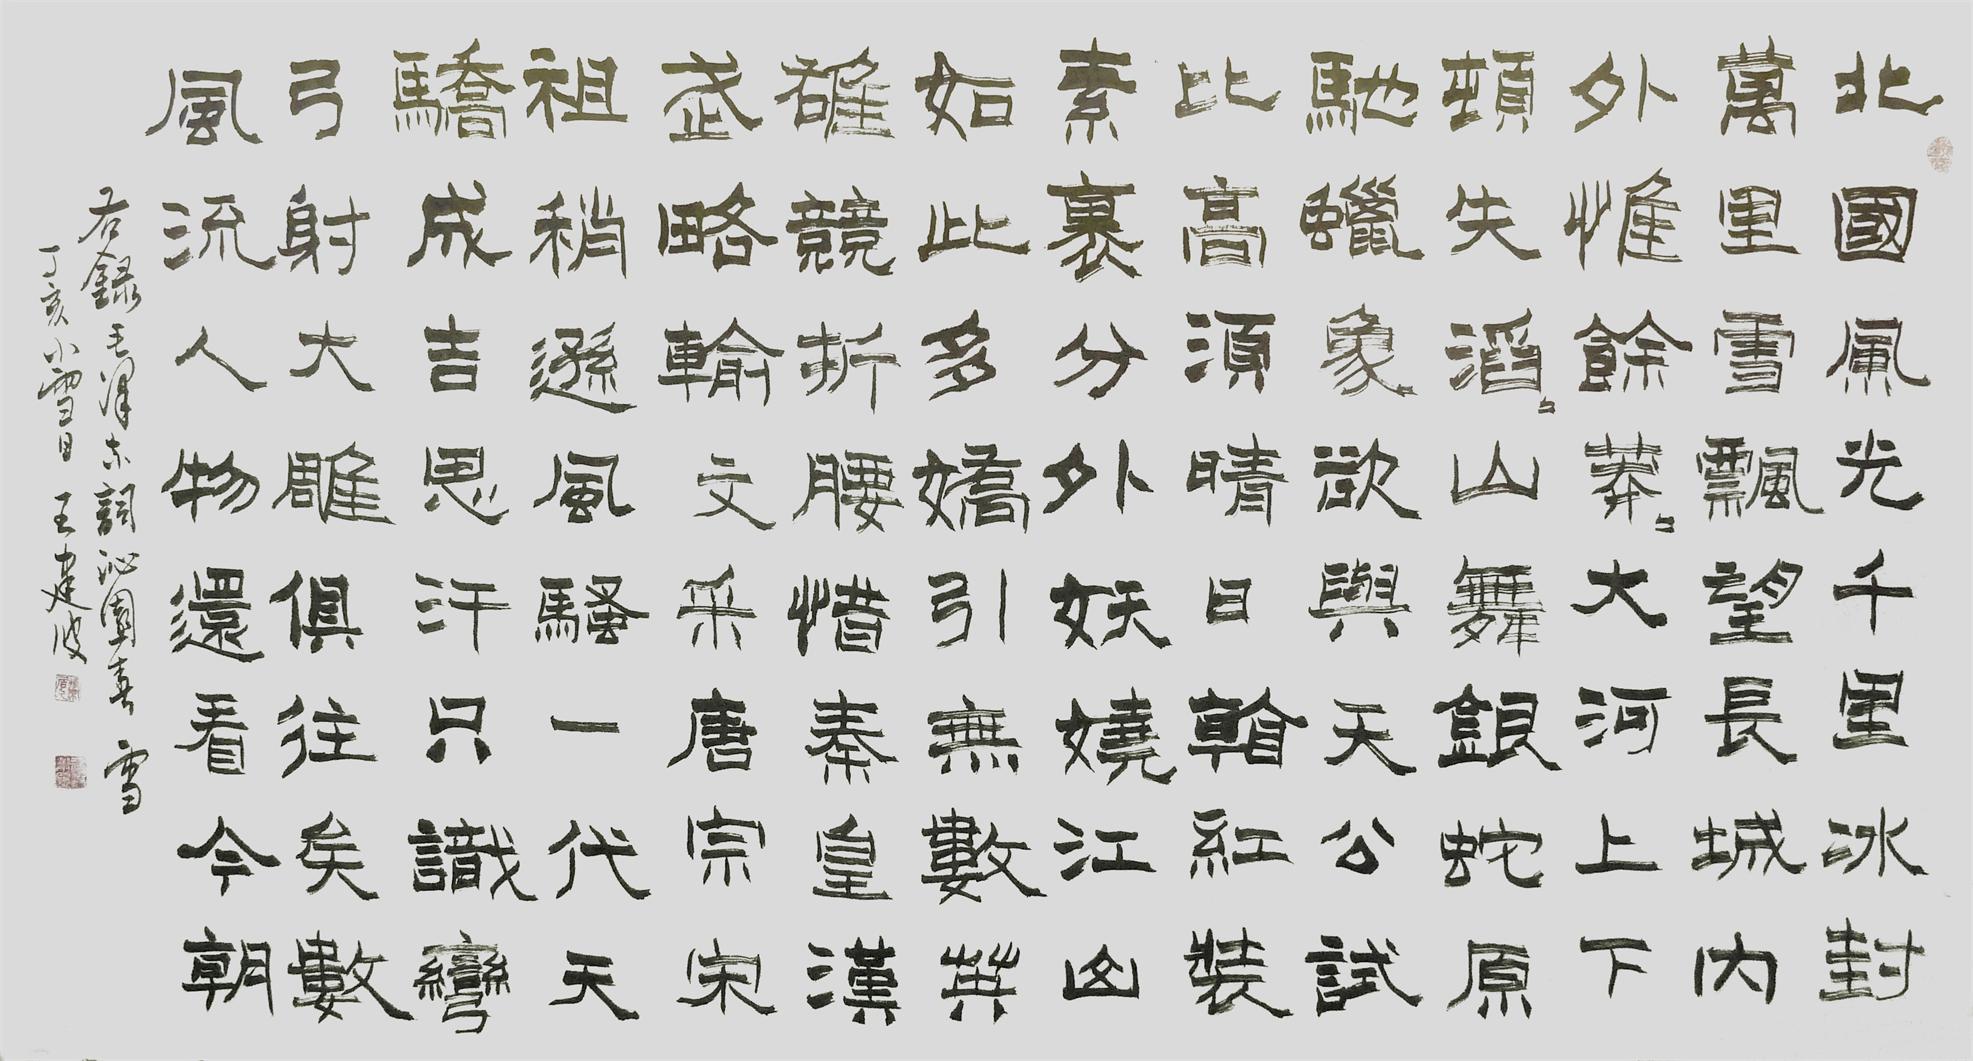 北國風光千里冰封
萬里雪飄望長城內
外惟餘莽〻大河上下
頓失滔〻山舞銀蛇原
馳蠟象欲與天公試
比高須晴日看紅裝
素裹分外妖嬈江山
如此多嬌引無數英
雄競折腰惜秦皇漢
武略輸文采唐宗宋
祖稍遜風騷一代天
驕成吉思汗只識彎
弓射大雕俱往矣數
風流人物還看今朝
右錄毛澤東詞沁園春 雪
丁亥小雪日 王建波